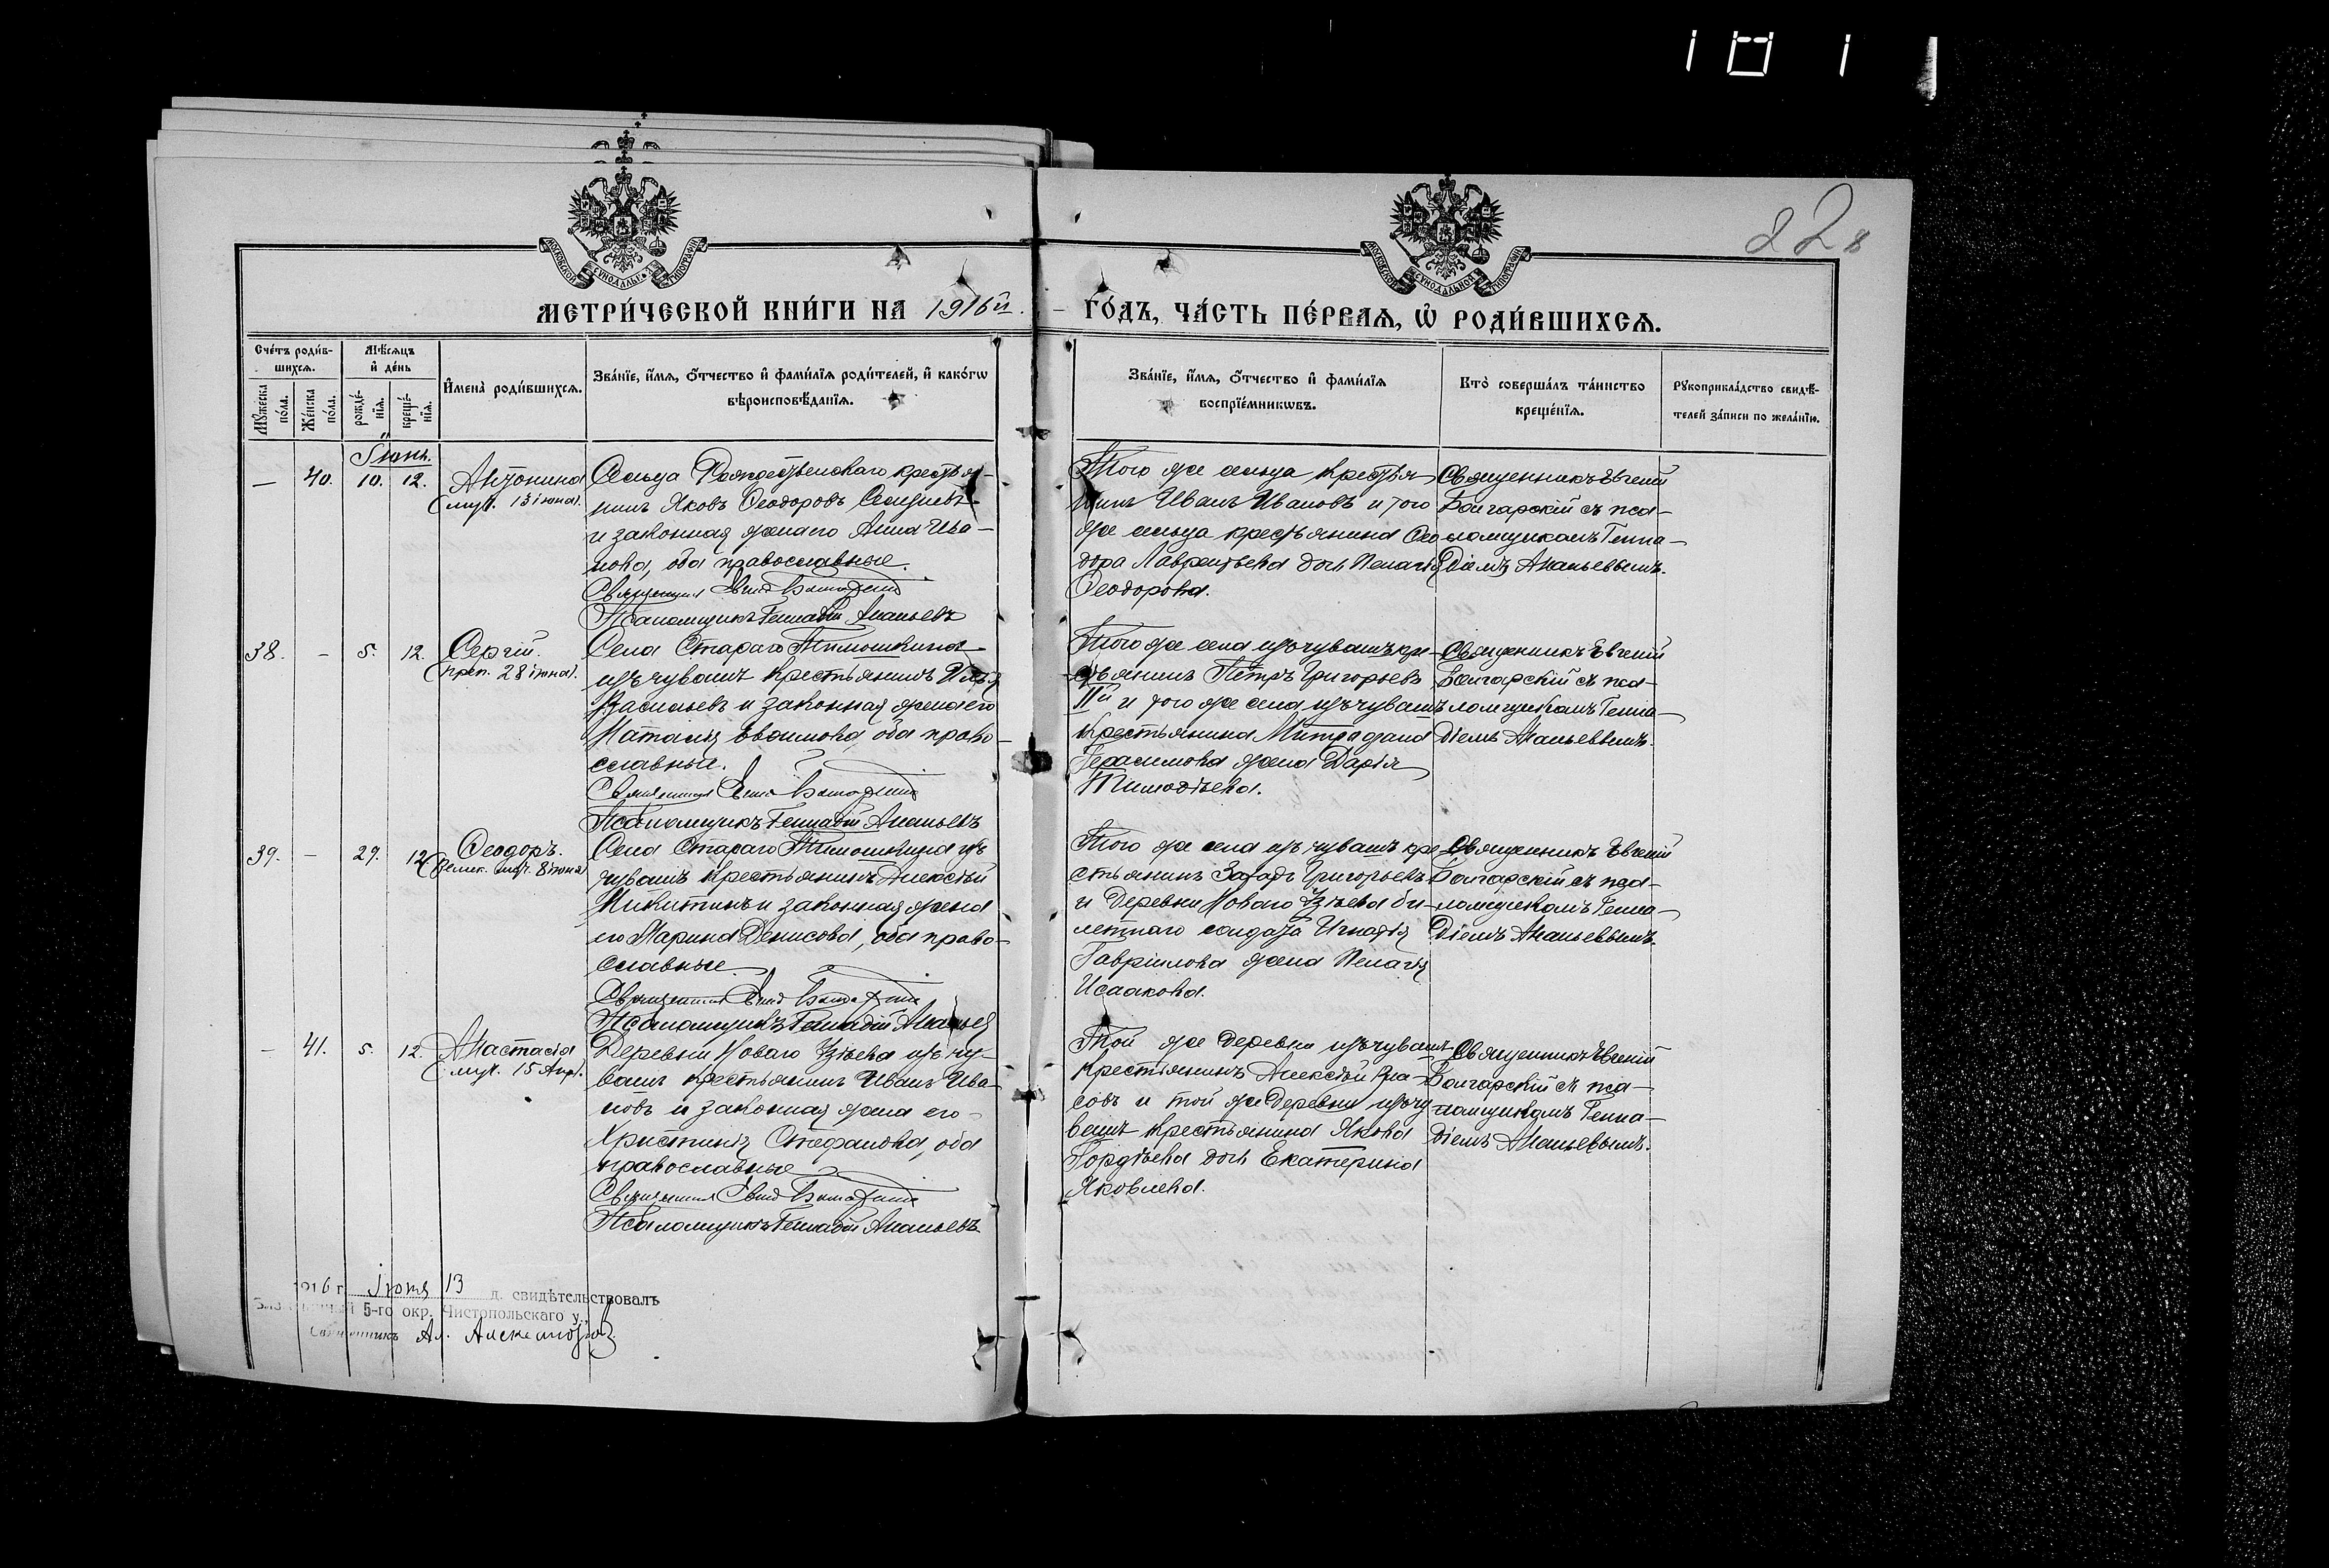 1 0 1 1
228
МЕТРИ́ЧЕСКОЙ КНИ́ГИ НА 1916й.
ГО́ДЪ, ЧА́СТЬ ПЕ́РВАЯ, Ѡ҆ РОДИ́ВШИХСЯ.
Сче́тъ роди́в-
шихся.
Мꙋ́жеска по́ла.
Же́нска по́ла.
Мѣ́сяцъ
и҆ де́нь
рожде́-
нїя.
креще́-
нїя.
И҆мена̀ роди́вшихся.
Зва́нїе, и҆́мя, ѻ҆́тчество и҆ фами́лїя роди́телей, и҆ како́гѡ
вѣроисповѣ́данїя.
Зва́нїе, и҆́мя, ѻ҆́тчество и҆ фами́лїя
воспрїе́мникѡвъ.
Кто̀ соверша́лъ та́инство
креще́нїя.
Рꙋкоприкла́дство свидѣ́-
телей за́писи по жела́нїю.
Іюнь.
— 40. 10. 12.
Антонина
(муч. 13 іюня).
Сельца Рождественскаго крестья-
нинъ Яковъ Ѳеодоровъ
и законная жена его Анна Ива-
нова, оба православные.
Священникъ
Псаломщикъ Геннадій Ананьевъ
Того же сельца крестья-
нинъ Иванъ Ивановъ и того
же сельца крестьянина Ѳео-
дора Лаврентьева дочь Пелагія
Ѳеодорова.
Священникъ Евгеній
Болгарскій съ пса-
ломщикомъ Генна-
діемъ Ананьевымъ.
38. — 5. 12.
Сергій.
(преп. 28 іюня).
Села Стараго Тимошкина
изъ чувашъ крестьянинъ Илья
Васильевъ и законная жена его
Наталія Евѳимова, оба право-
славные.
Священникъ
Псаломщикъ Геннадій Ананьевъ
Того же села изъ чувашъ кре-
стьянинъ Петръ Григорьевъ
IIй и того же села изъ чувашъ
крестьянина Митрофана
Герасимова жена Дарія
Тимоѳеева.
Священникъ Евгеній
Болгарскій съ пса-
ломщикомъ Генна-
діемъ Ананьевымъ.
39. — 29. 12.
Ѳеодоръ.
(велик. муч. 8 іюня)
Села Стараго Тимошкина изъ
чувашъ крестьянинъ Алексѣй
Никитинъ и законная жена
его Марина Денисова, оба право-
славные.
Священникъ
Псаломщикъ Геннадій Ананьев
Того же села изъ чувашъ кре-
стьянинъ Захаръ Григорьевъ
и деревни Новаго Узѣева би-
летнаго солдата Игнатія
Гавріилова жена Пелагія
Исаакова.
Священникъ Евгеній
Болгарскій съ пса-
ломщикомъ Генна-
діемъ Ананьевымъ.
— 41. 5. 12.
Анастасія
(муч. 15 Апр).
Деревни Новаго Узѣева изъ чу-
вашъ крестьянинъ Иванъ Ива-
новъ и законная жена его
Христинія Стефанова, оба
православные
Священникъ
Псаломщикъ Геннадій Ананьевъ
Той же деревни изъ чувашъ
крестьянинъ Алексѣй Вла-
совъ и той же деревни изъ чу-
вашъ крестьянина Якова
Гордѣева дочь Екатерина
Яковлева.
Священникъ Евгеній
Болгарскій съ пса-
ломщикомъ Генна-
діемъ Ананьевымъ.
1916 г. Іюня 13 д. свидѣтельствовалъ
5-го окр. Чистопольскаго у.,
Священникъ Ал.